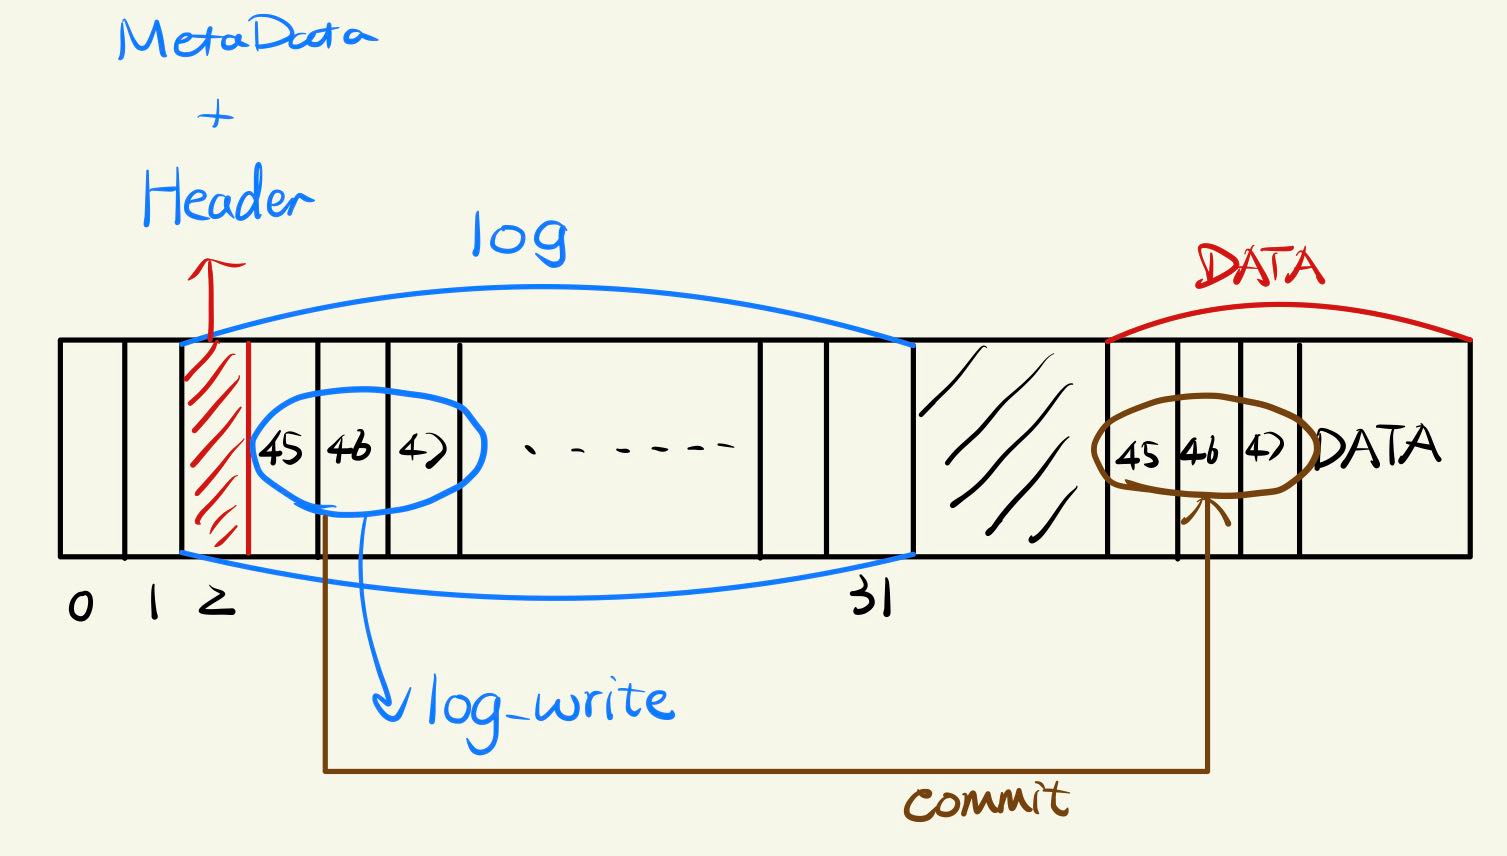 MetaData
+
Header
log
DATA
45 46 47 45 46 47 DATA
0 1 2 31
log_write
commit